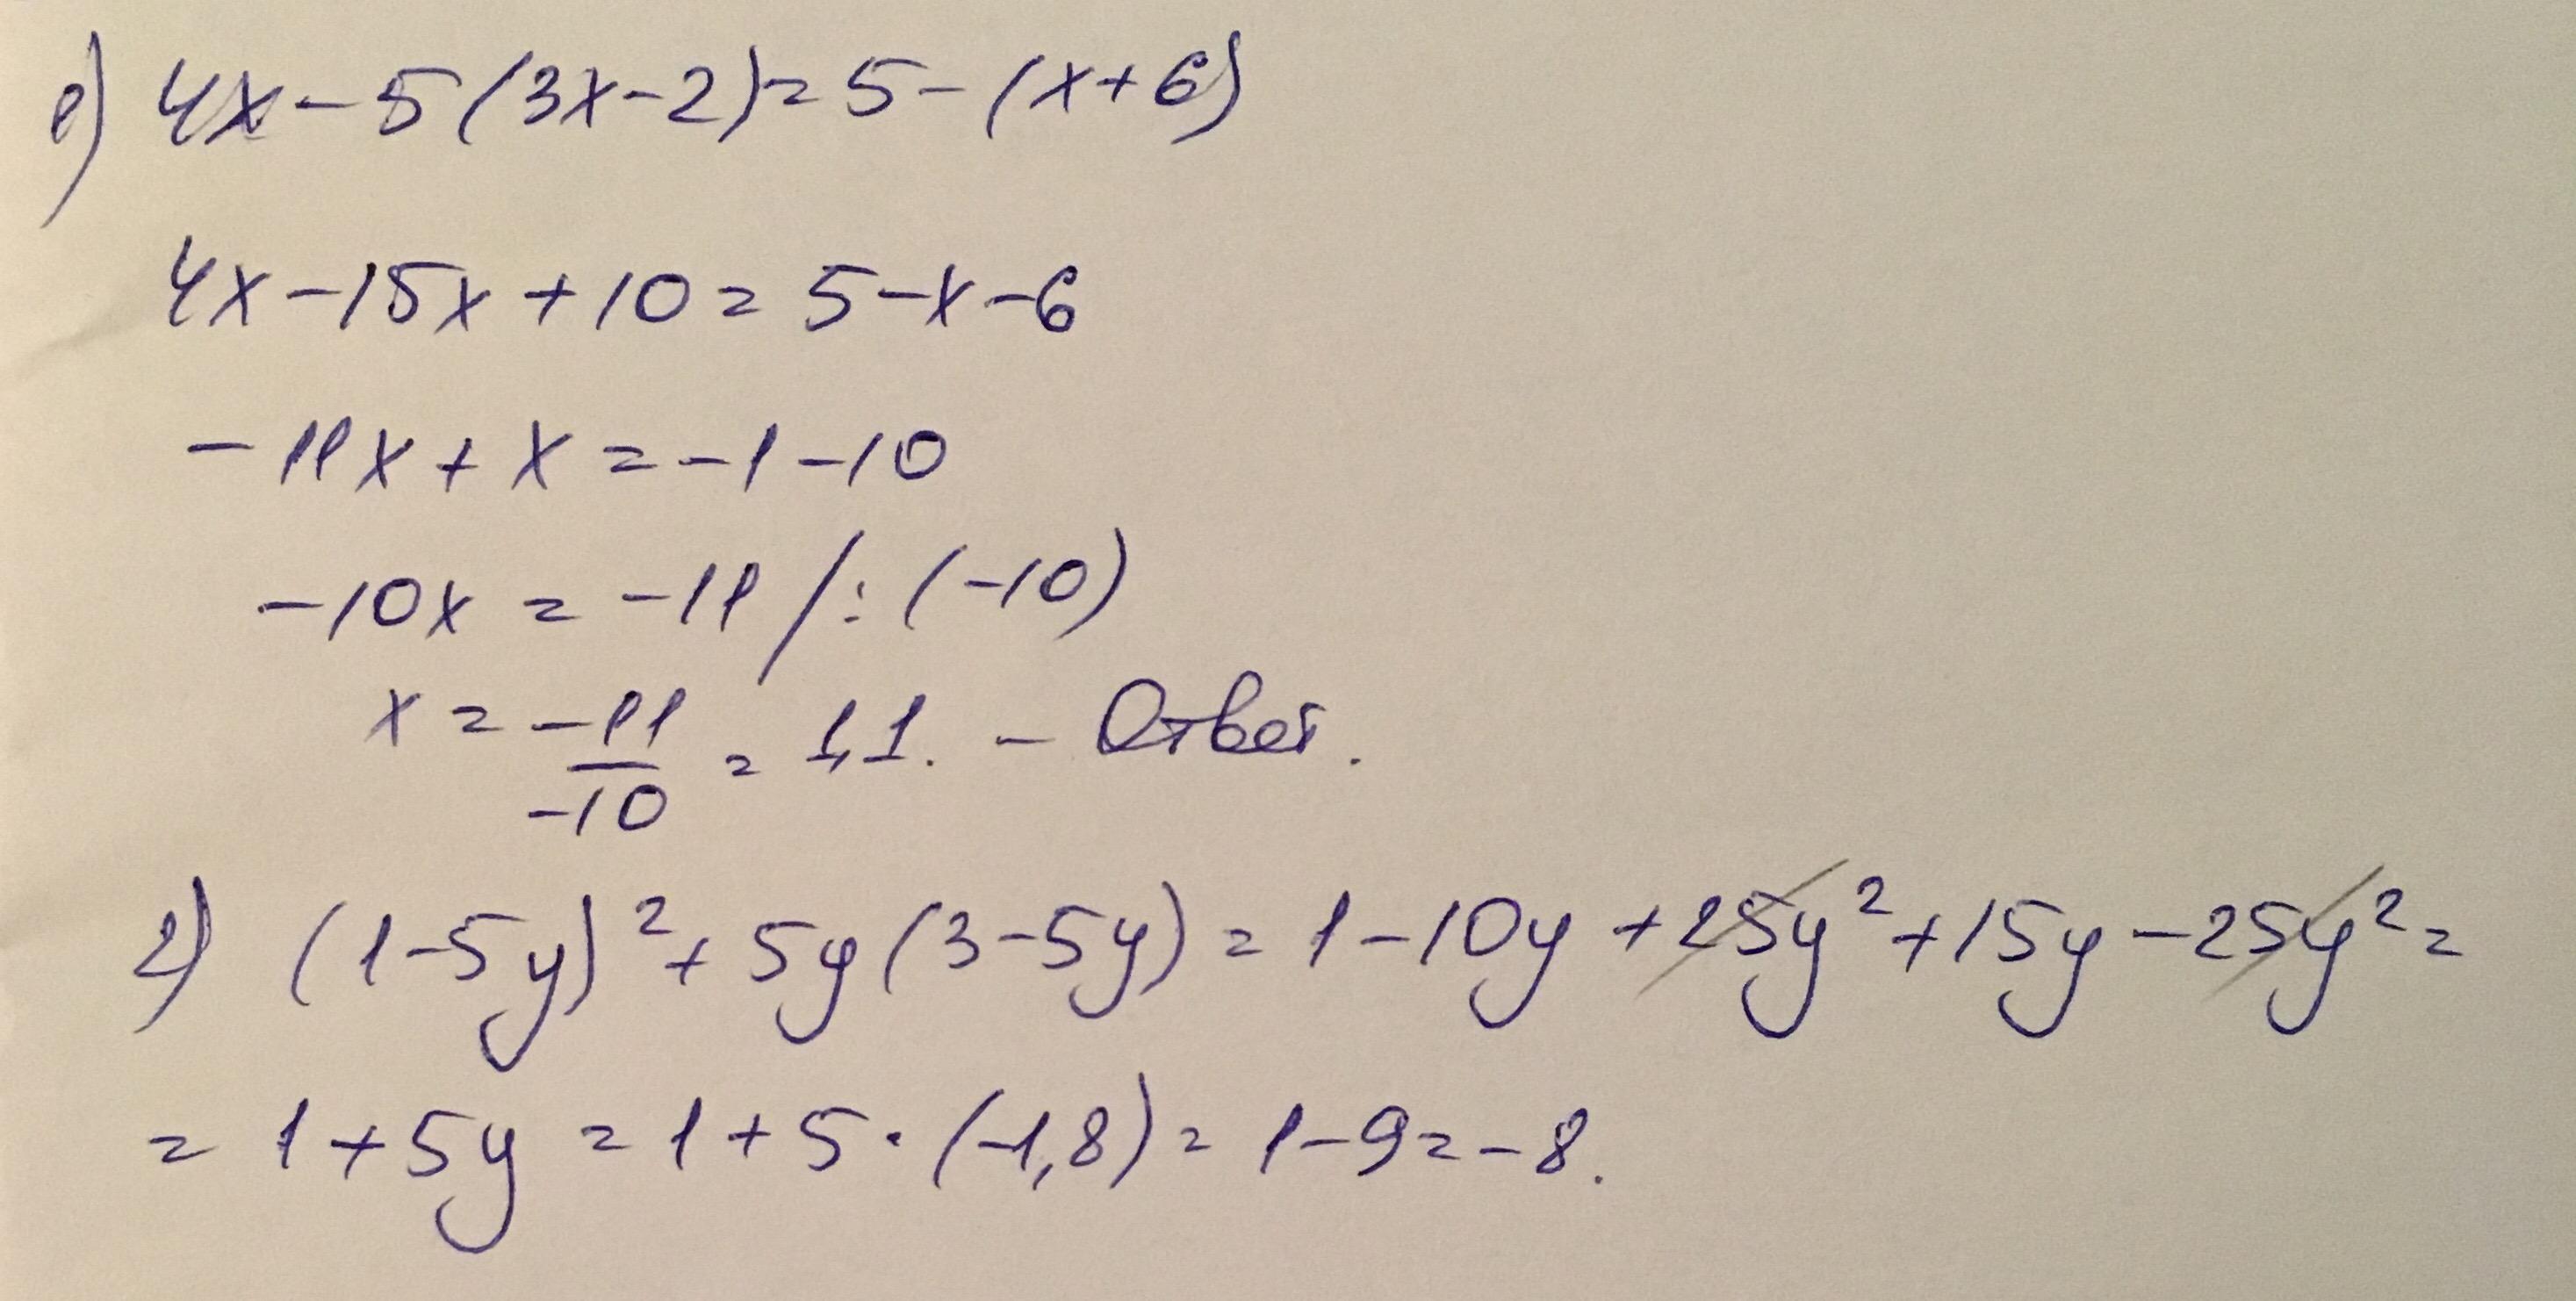 1) 4x - 5(3x - 2) = 5 - (x + 6)
4x - 15x + 10 = 5 - x - 6
- 11x + x = - 1 - 10
- 10x = - 11 /: (-10)
x = -11/-10 = 1,1. - Ответ.
2) (1 - 5y)² + 5y(3 - 5y) = 1 - 10y + 25y² + 15y - 25y² =
= 1 + 5y = 1 + 5 · (-1,8) = 1 - 9 = - 8.